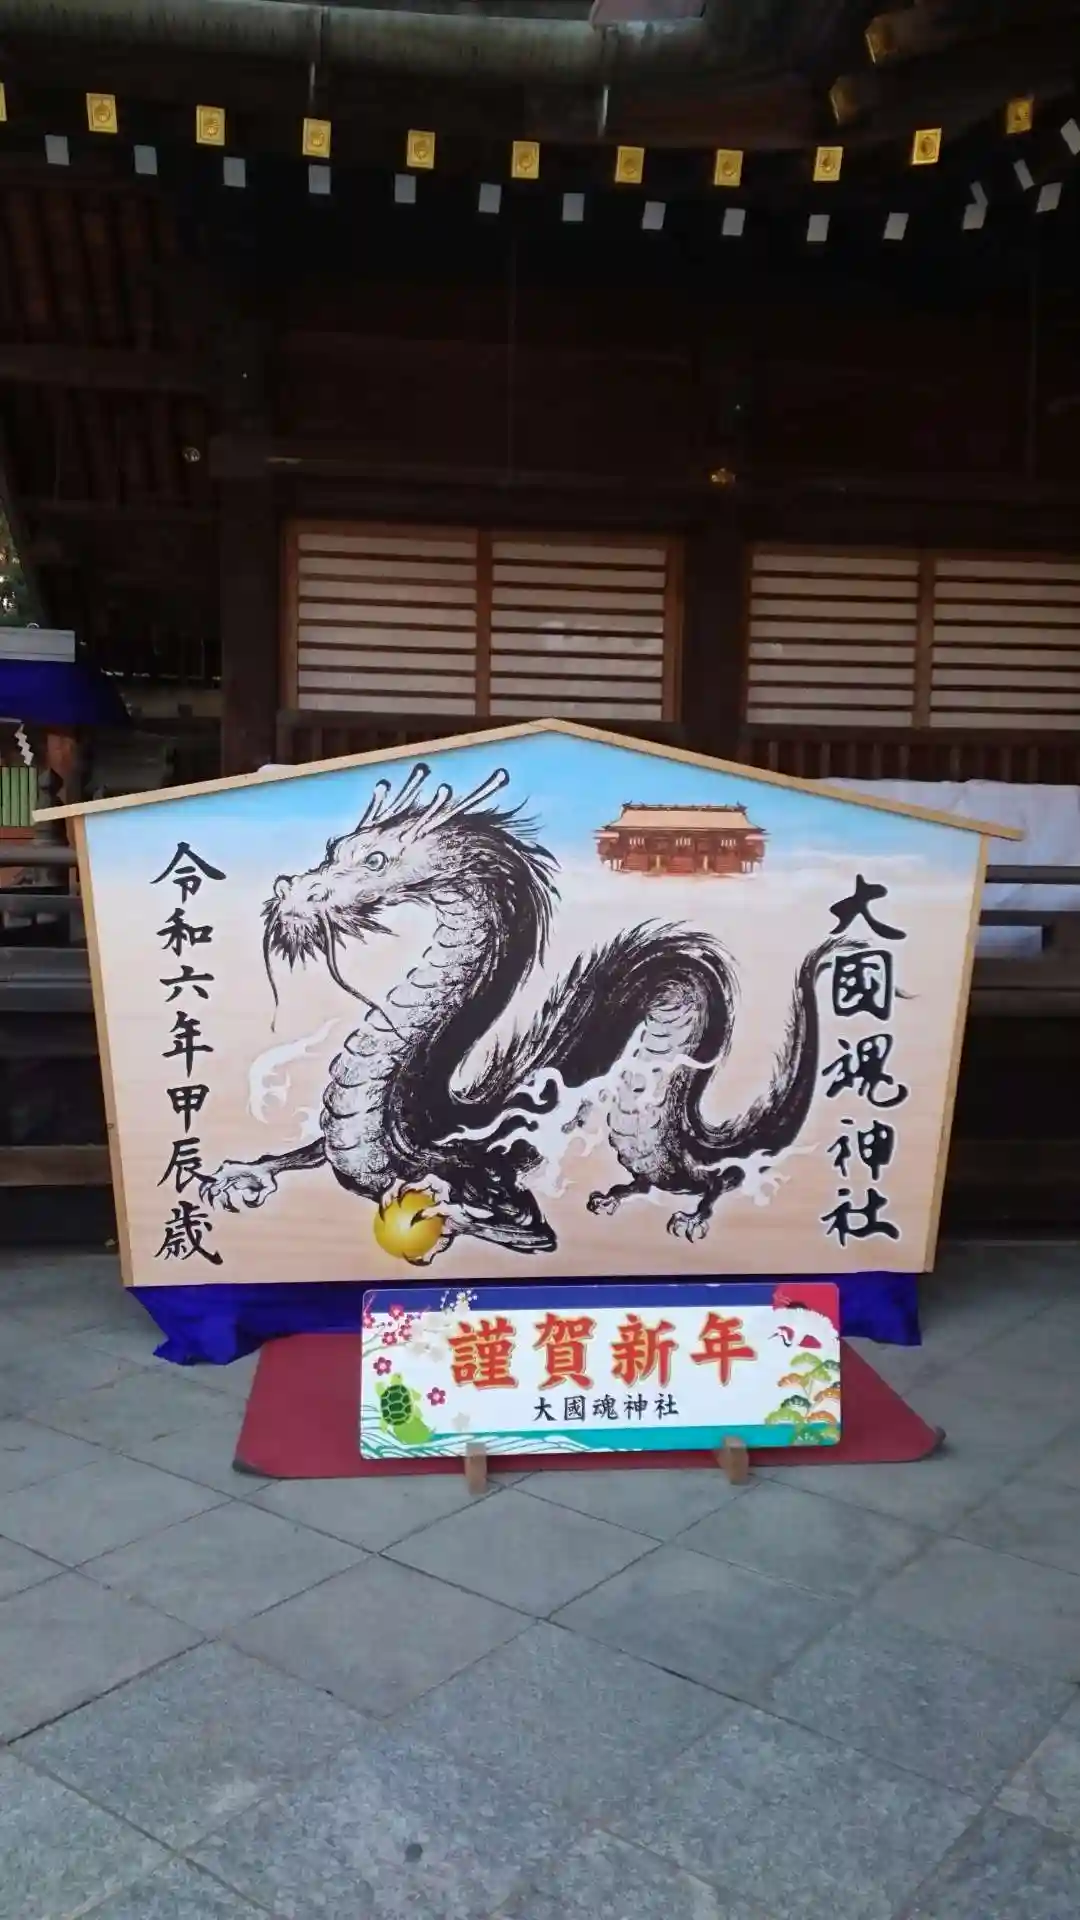 大國魂神社
令和六年甲辰歳
謹賀新年
大國魂神社